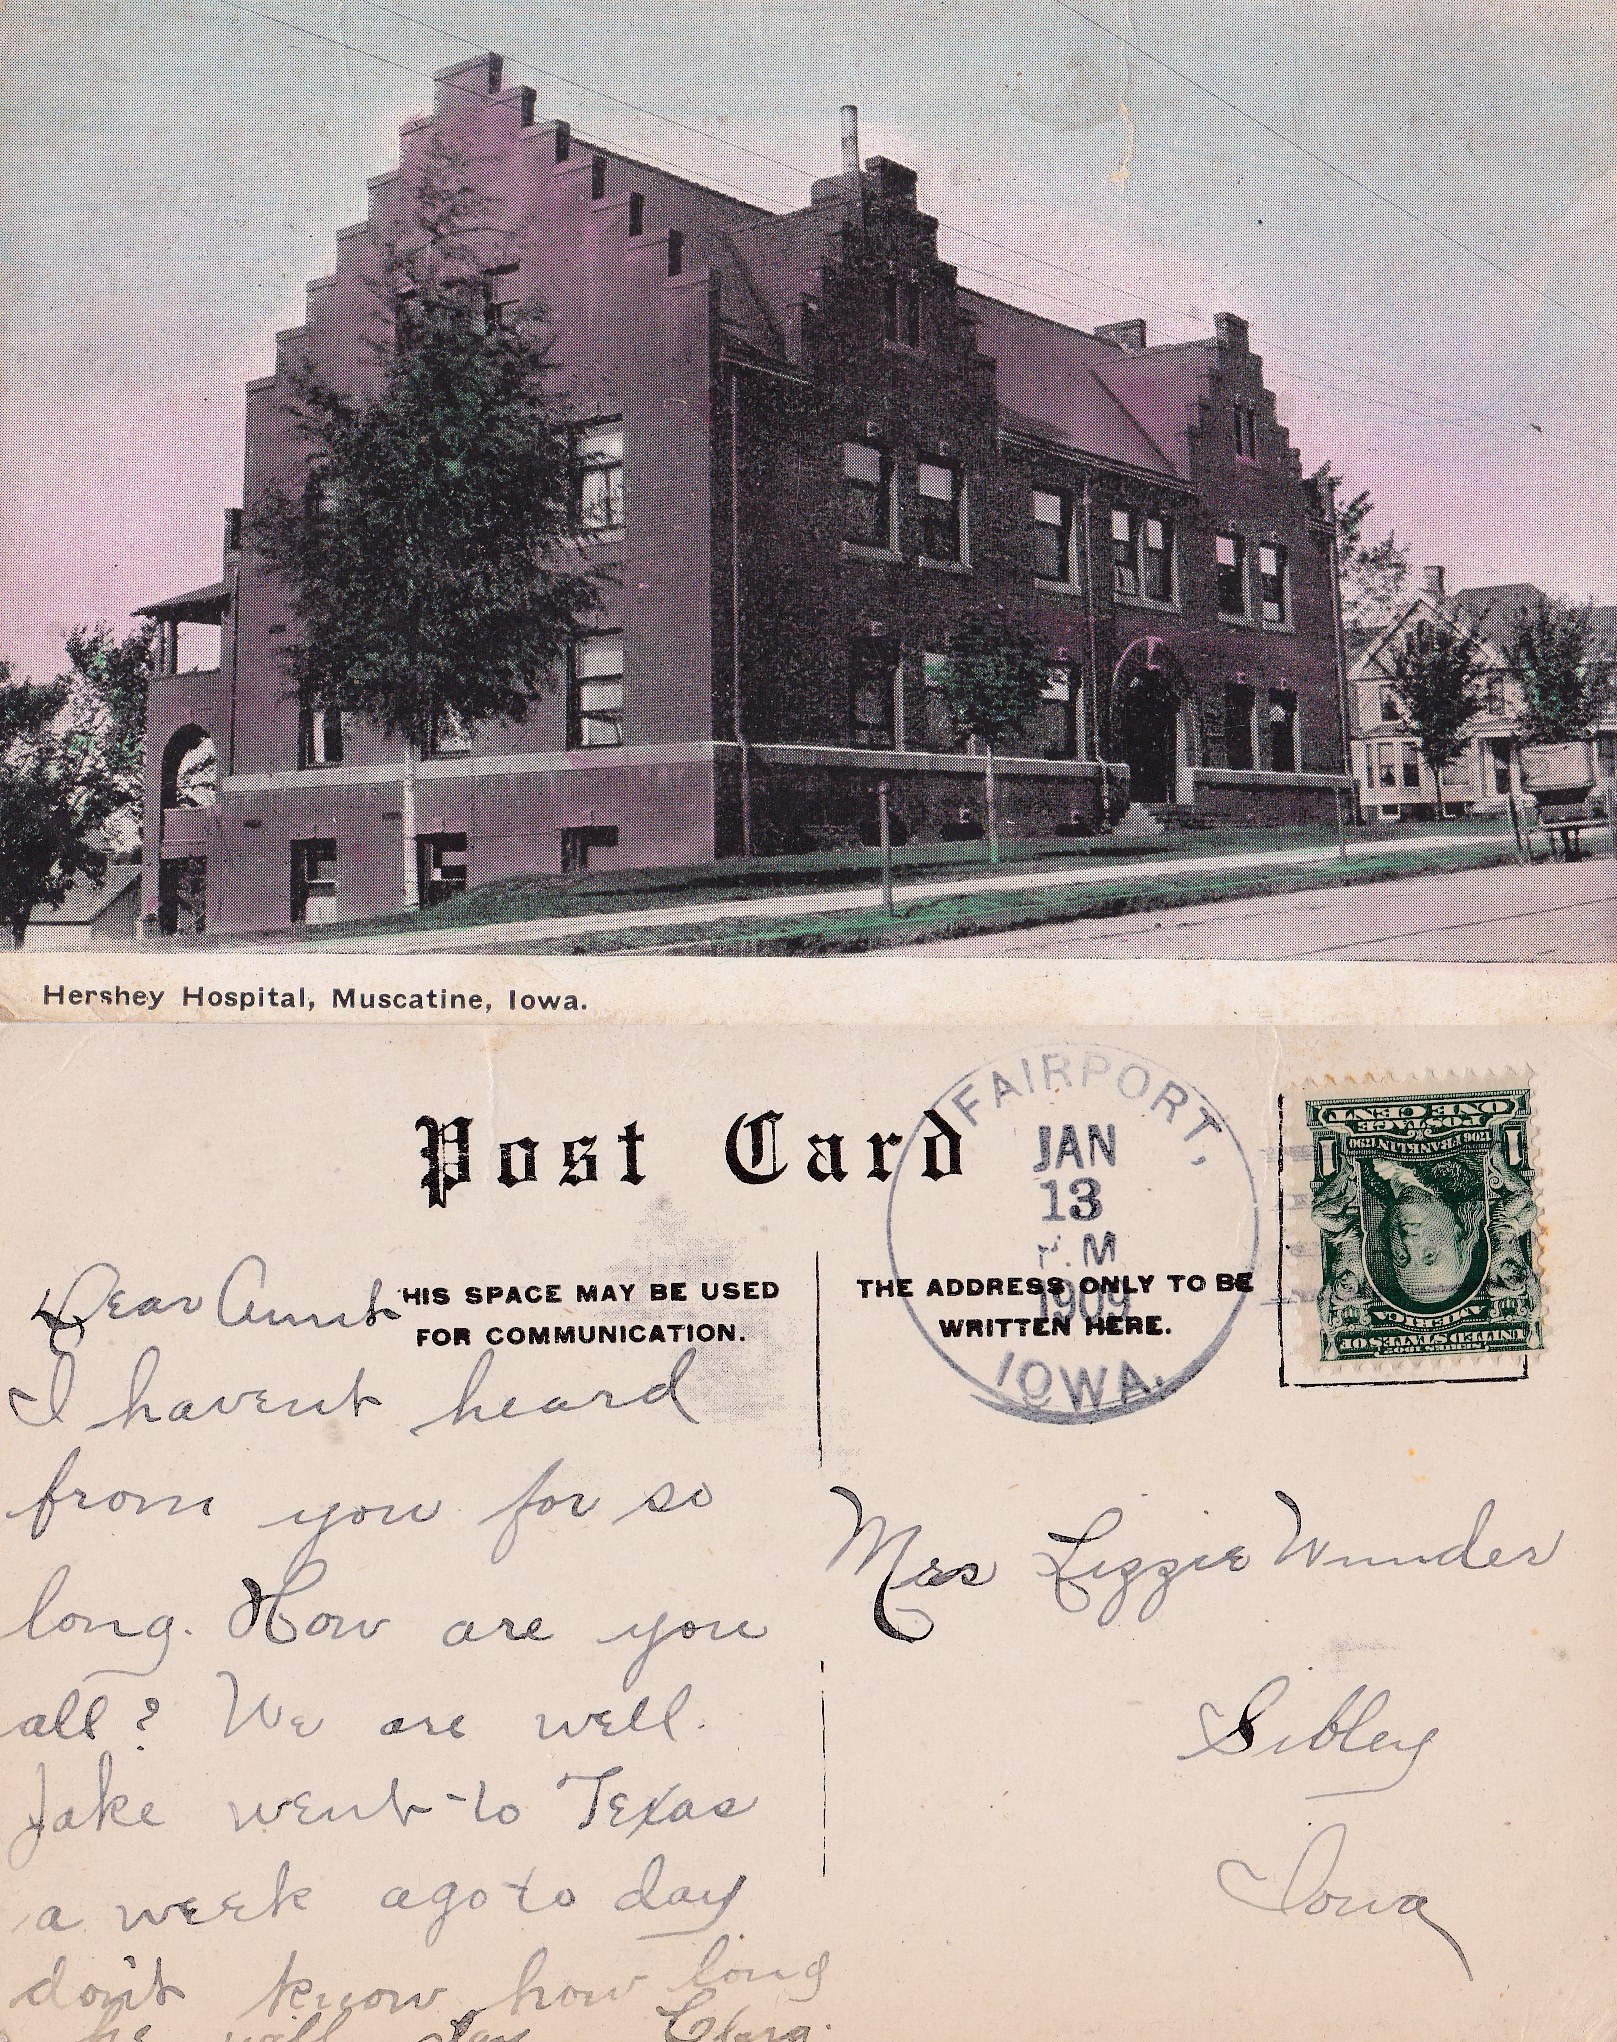 Hershey Hospital, Muscatine, Iowa.
Post Card
FAIRPORT,
JAN
13
P.M
1909
IOWA.
ONE CENT
POSTAGE
1706 FRANKLIN 1790
1 1
UNITED STATES OF
AMERICA
SERIES 1902
HIS SPACE MAY BE USED
FOR COMMUNICATION.
THE ADDRESS ONLY TO BE
WRITTEN HERE.
Dear Aunt
I havent heard
from you for so
long. How are you
all? We are well.
Jake went to Texas
a week ago to day
don't know how long
he will stay Clara.
Mrs Lizzie Wunder
Sibley
Iowa